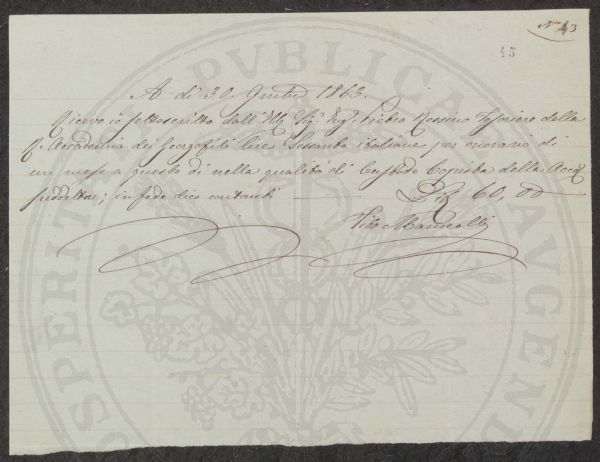 N° 43
43
A dì 30 Gmbre 1863.
Ricevo io sottoscritto dall' Ill. Sig. Ing. Pietro Rossino Tesoriere della
R. Accademia dei Georgofili lire Sessanta italiane per onorario di
un mese a questo dì nella qualità di Custode Copista della Acc.
suddetta; in fede dico contanti — L. 60, 00
Vito
PUBLICAE
PROSPERITATI
AUGENDAE